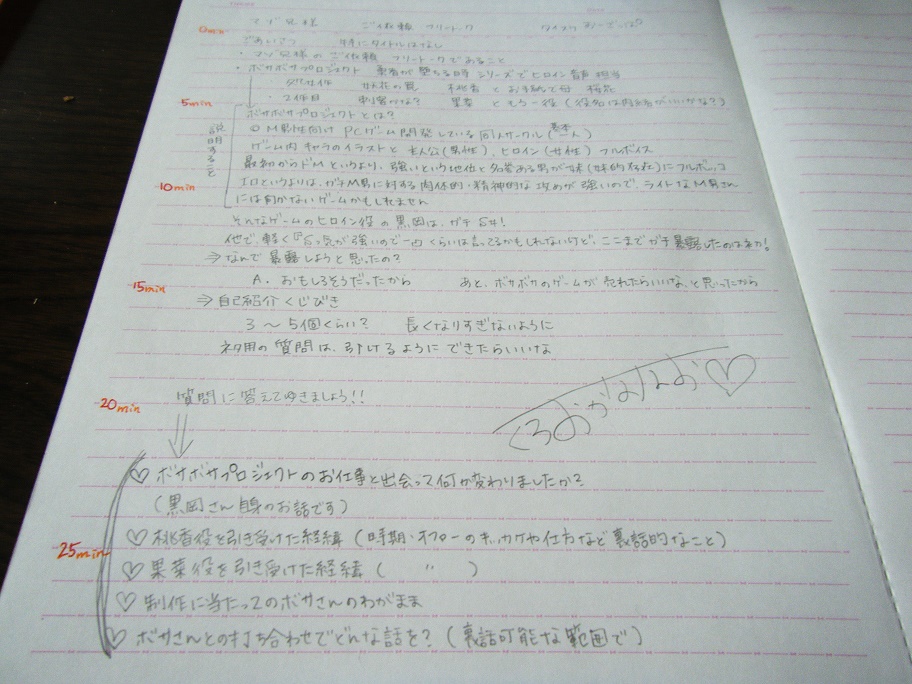 マゾ兄様 ご依頼 フリートーク
0min
ごあいさつ 特にタイトルはなし
・マゾ兄様の ご依頼 フリートークであること
・ボサボサプロジェクト 勇者が堕ちる時 シリーズでヒロイン 担当
桃香 とお手紙で母 桜花
・2作目 果菜 ともう一役 (役名は内緒がいいかな?)
5min
ボサボサプロジェクトとは?
説明すること
◎ M男性向け PCゲーム開発している同人サークル(基本一人)
ゲーム内 キャラのイラストと 主人公(男性)、ヒロイン(女性) フルボイス
最初からドMというより、強いという地位と名誉ある男が妹(妹的存在)にフルボッコ
エロというよりは、ガチM男に対する肉体的・精神的な攻めが強いので、ライトなM男さん
10min
には向かないゲームかもしれません
そんなゲームのヒロイン役の黒岡は、ガチS学!
他で軽く『Sっ気が強いので〜』くらいは言ってるかもしれないけど、ここまでガチ暴露したのはネカ!
⇒なんで暴露しようと思ったの?
A. おもしろそうだったから あと、ボサボサのゲームが売れたらいいな、と思ったから
15min
⇒自己紹介くじびき
3〜5個くらい? 長くなりすぎないように
ネタ用の質問は、引けるようにできたらいいな
20min
質問に答えてゆきましょう!!
♡ボサボサプロジェクトのお仕事と出会って何が変わりましたか?
(黒岡さん自身のお話です)
25min
♡桃香役を引き受けた経緯(時期・オファーのきっかけや仕方など裏話的なこと)
♡果菜役を引き受けた経緯( 〃 )
♡制作に当たってのボサさんのわがまま
♡ボサさんとの打ち合わせでどんな話を?(裏話可能な範囲で)